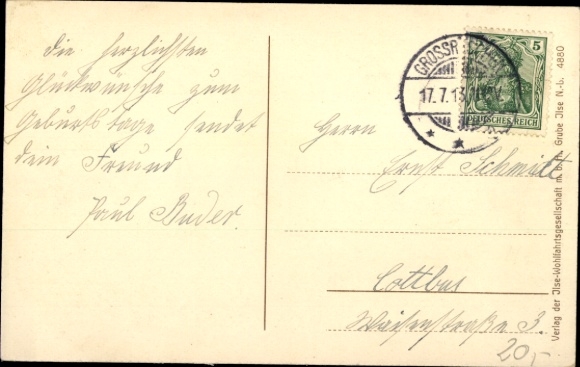 Die herzlichsten
Glückwünsche zum
Geburtstage sendet
dein Freund
Paul Buder.
GROSSR
17.7.13
5
DEUTSCHES REICH
Herrn
Ernst Schmidt
Cottbus
Waisenstraße 3.
20,-
Verlag der Ilse-Wohlfahrtsgesellschaft m. b. H. Grube Ilse N.-L. 4880